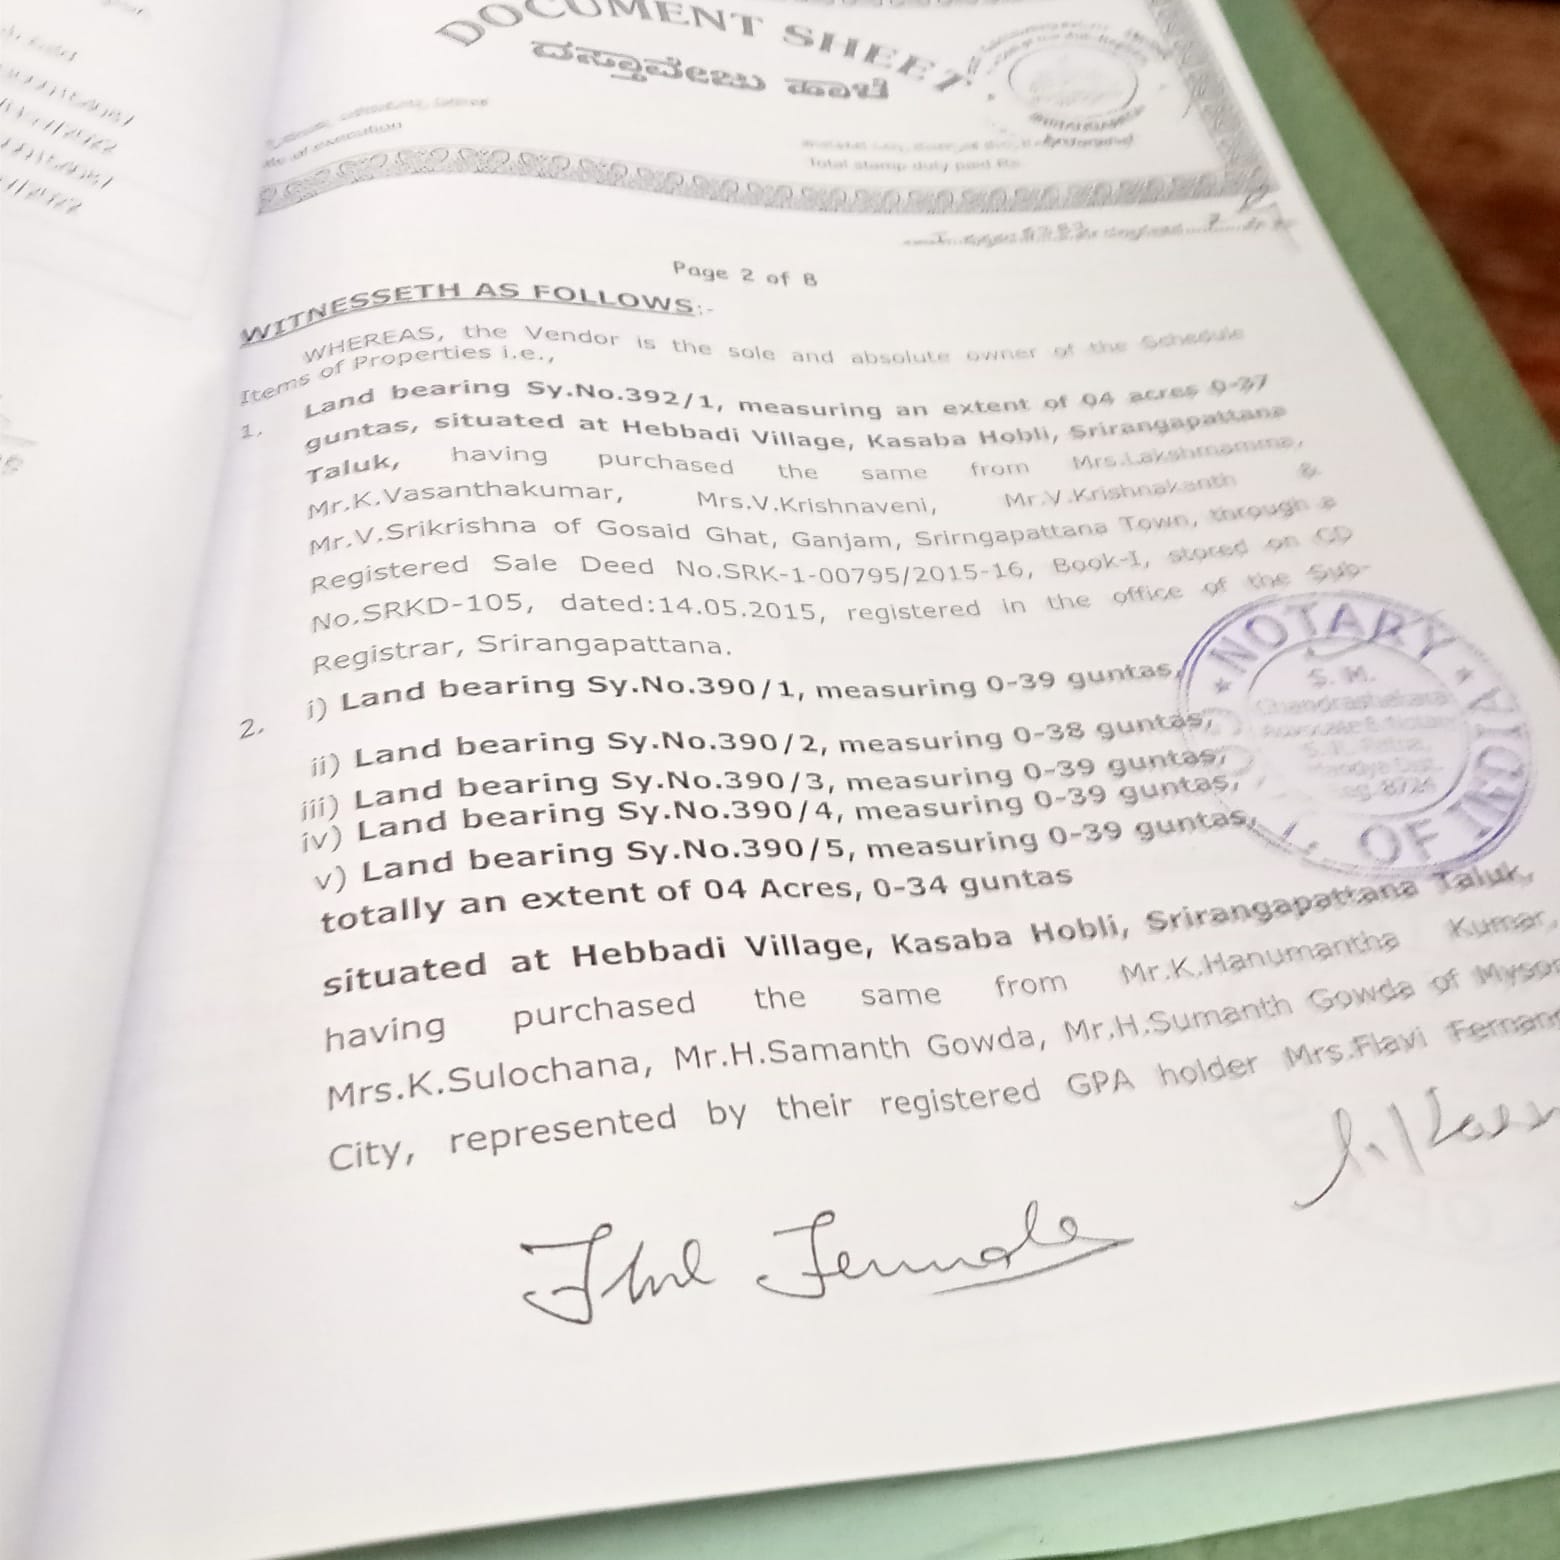 DOCUMENT SHEET
ದಸ್ತಾವೇಜು ಹಾಳೆ
of execution
Total stamp duty paid Rs.
Page 2 of 8
WITNESSETH AS FOLLOWS:-
WHEREAS, the Vendor is the sole and absolute owner of the Schedule
Items of Properties i.e.,
1. Land bearing Sy.No.392/1, measuring an extent of 04 acres 0-37
guntas, situated at Hebbadi Village, Kasaba Hobli, Srirangapattana
Taluk, having purchased the same from Mrs.Lakshmamma,
Mr.K.Vasanthakumar, Mrs.V.Krishnaveni, Mr.V.Krishnakanth &
Mr.V.Srikrishna of Gosaid Ghat, Ganjam, Srirngapattana Town, through a
Registered Sale Deed No.SRK-1-00795/2015-16, Book-I, stored on CD
No.SRKD-105, dated:14.05.2015, registered in the office of the Sub-
Registrar, Srirangapattana.
2. i) Land bearing Sy.No.390/1, measuring 0-39 guntas,
ii) Land bearing Sy.No.390/2, measuring 0-38 guntas,
iii) Land bearing Sy.No.390/3, measuring 0-39 guntas,
iv) Land bearing Sy.No.390/4, measuring 0-39 guntas,
v) Land bearing Sy.No.390/5, measuring 0-39 guntas,
totally an extent of 04 Acres, 0-34 guntas
situated at Hebbadi Village, Kasaba Hobli, Srirangapattana Taluk,
having purchased the same from Mr.K.Hanumantha Kumar,
Mrs.K.Sulochana, Mr.H.Samanth Gowda, Mr.H.Sumanth Gowda of Mysor
City, represented by their registered GPA holder Mrs.Flavi Fernan
NOTARY
S. M.
Chandrashekara
Advocate & Notary
Mandya Dist.
8726
OF INDIA